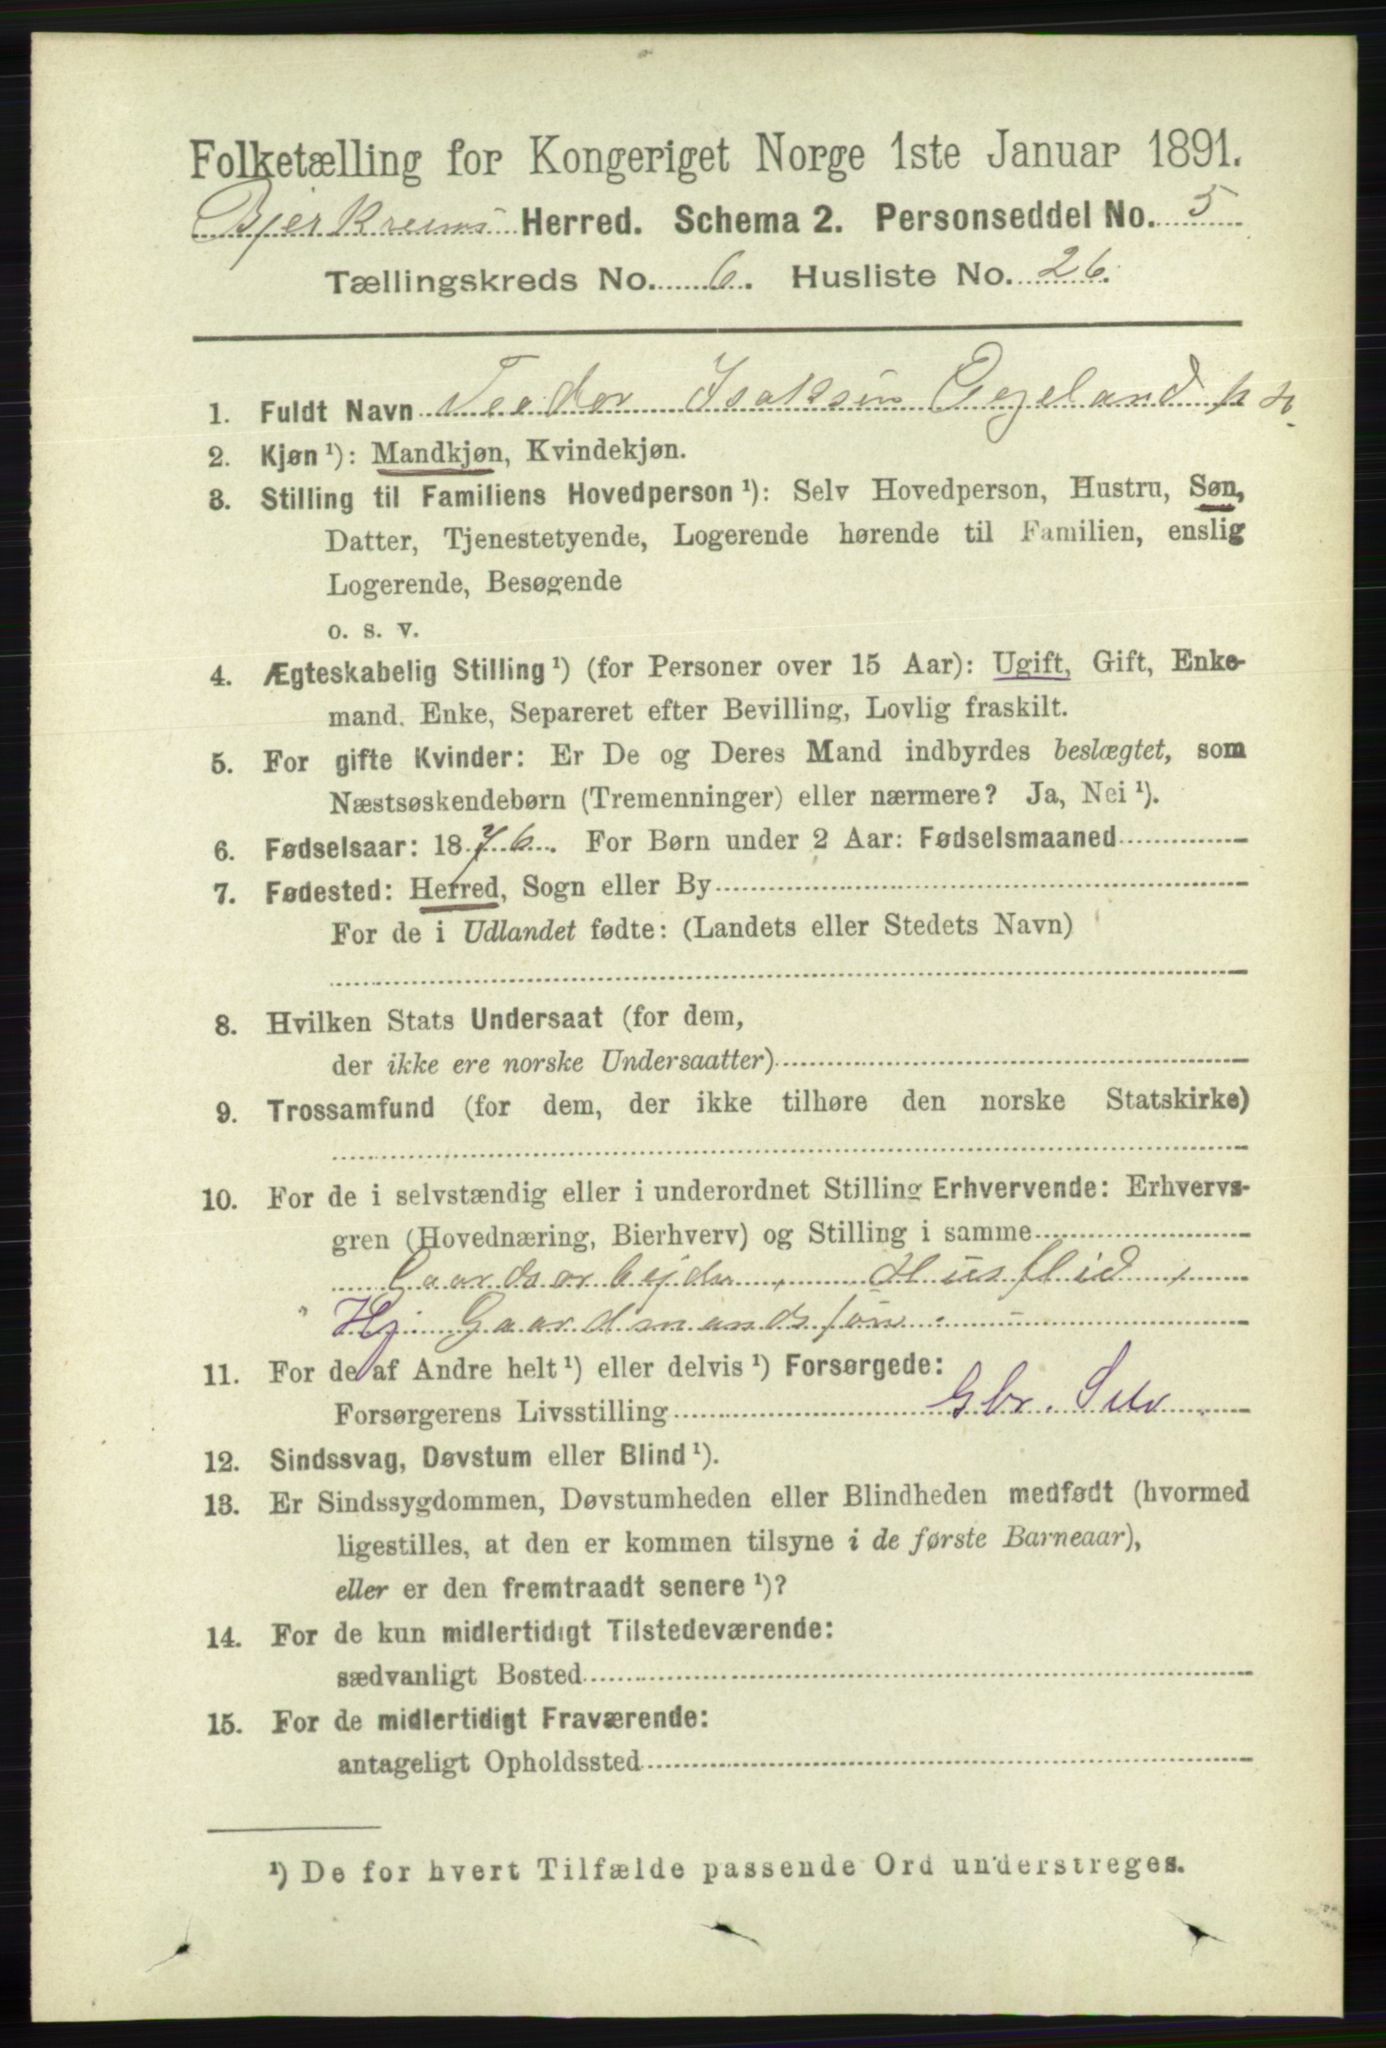 Folketælling for Kongeriget Norge 1ste Januar 1891.
Bjerkreims Herred. Schema 2. Personseddel No. 5
Tællingskreds No. 6. Husliste No. 26.
1. Fuldt Navn Teodor Isaksen Øygeland
2. Kjøn ¹): Mandkjøn, Kvindekjøn.
3. Stilling til Familiens Hovedperson ¹): Selv Hovedperson, Hustru, Søn,
Datter, Tjenestetyende, Logerende hørende til Familien, enslig
Logerende, Besøgende
o. s. v.
4. Ægteskabelig Stilling ¹) (for Personer over 15 Aar): Ugift, Gift, Enke-
mand, Enke, Separeret efter Bevilling, Lovlig fraskilt.
5. For gifte Kvinder: Er De og Deres Mand indbyrdes beslægtet, som
Næstsøskendebørn (Tremenninger) eller nærmere? Ja, Nei ¹).
6. Fødselsaar: 1876. For Børn under 2 Aar: Fødselsmaaned
7. Fødested: Herred, Sogn eller By
For de i Udlandet fødte: (Landets eller Stedets Navn)
8. Hvilken Stats Undersaat (for dem,
der ikke ere norske Undersaatter)
9. Trossamfund (for dem, der ikke tilhøre den norske Statskirke)
10. For de i selvstændig eller i underordnet Stilling Erhvervende: Erhvervs-
gren (Hovednæring, Bierhverv) og Stilling i samme
Gaardsarbejder, Husflid,
Hj. Gaardmandssøn.
11. For de af Andre helt ¹) eller delvis ¹) Forsørgede:
Forsørgerens Livsstilling Gbr. Selv
12. Sindssvag, Døvstum eller Blind ¹).
13. Er Sindssygdommen, Døvstumheden eller Blindheden medfødt (hvormed
ligestilles, at den er kommen tilsyne i de første Barneaar),
eller er den fremtraadt senere ¹)?
14. For de kun midlertidigt Tilstedeværende:
sædvanligt Bosted
15. For de midlertidigt Fraværende:
antageligt Opholdssted
¹) De for hvert Tilfælde passende Ord understreges.